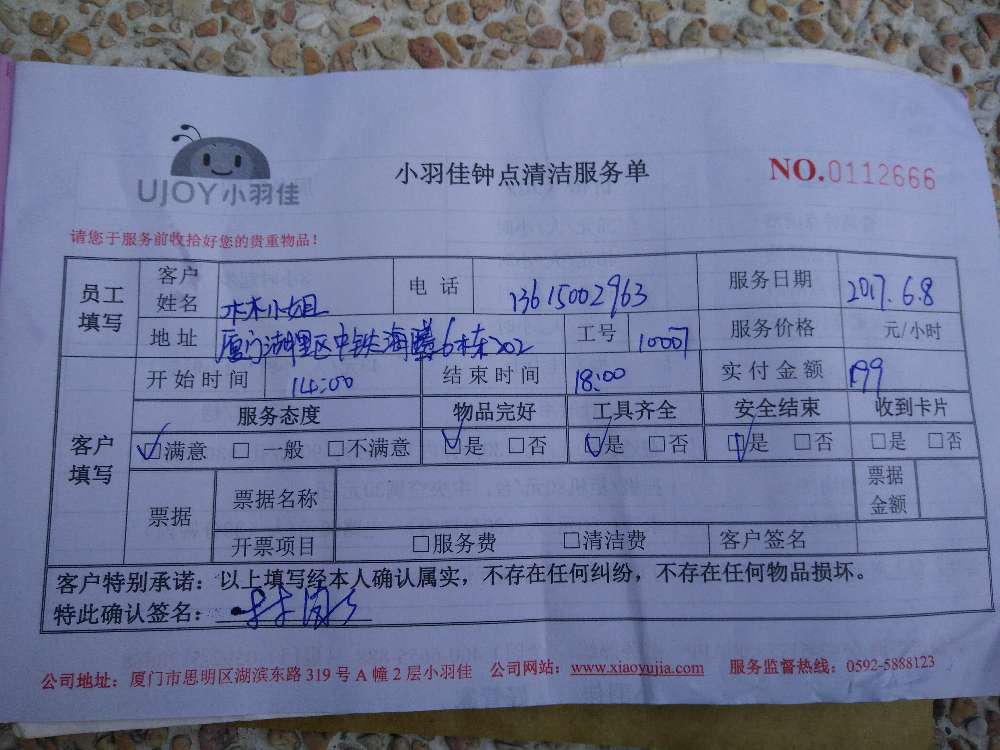 UJOY小羽佳
小羽佳钟点清洁服务单
NO.0112666
请您于服务前收拾好您的贵重物品！
员工填写 客户姓名 林小姐 电话 13615002963 服务日期 2017.6.8
地址 厦门湖里区中铁海曦6栋202 工号 10007 服务价格 元/小时
客户填写 开始时间 14:00 结束时间 18:00 实付金额 199
服务态度 物品完好 工具齐全 安全结束 收到卡片
☑满意 □一般 □不满意 ☑是 □否 ☑是 □否 ☑是 □否 □是 □否
票据 票据名称 票据金额
开票项目 □服务费 □清洁费 客户签名
客户特别承诺：以上填写经本人确认属实，不存在任何纠纷，不存在任何物品损坏。
特此确认签名：
公司地址：厦门市思明区湖滨东路319号A幢2层小羽佳 公司网站：www.xiaoyujia.com 服务监督热线：0592-5888123